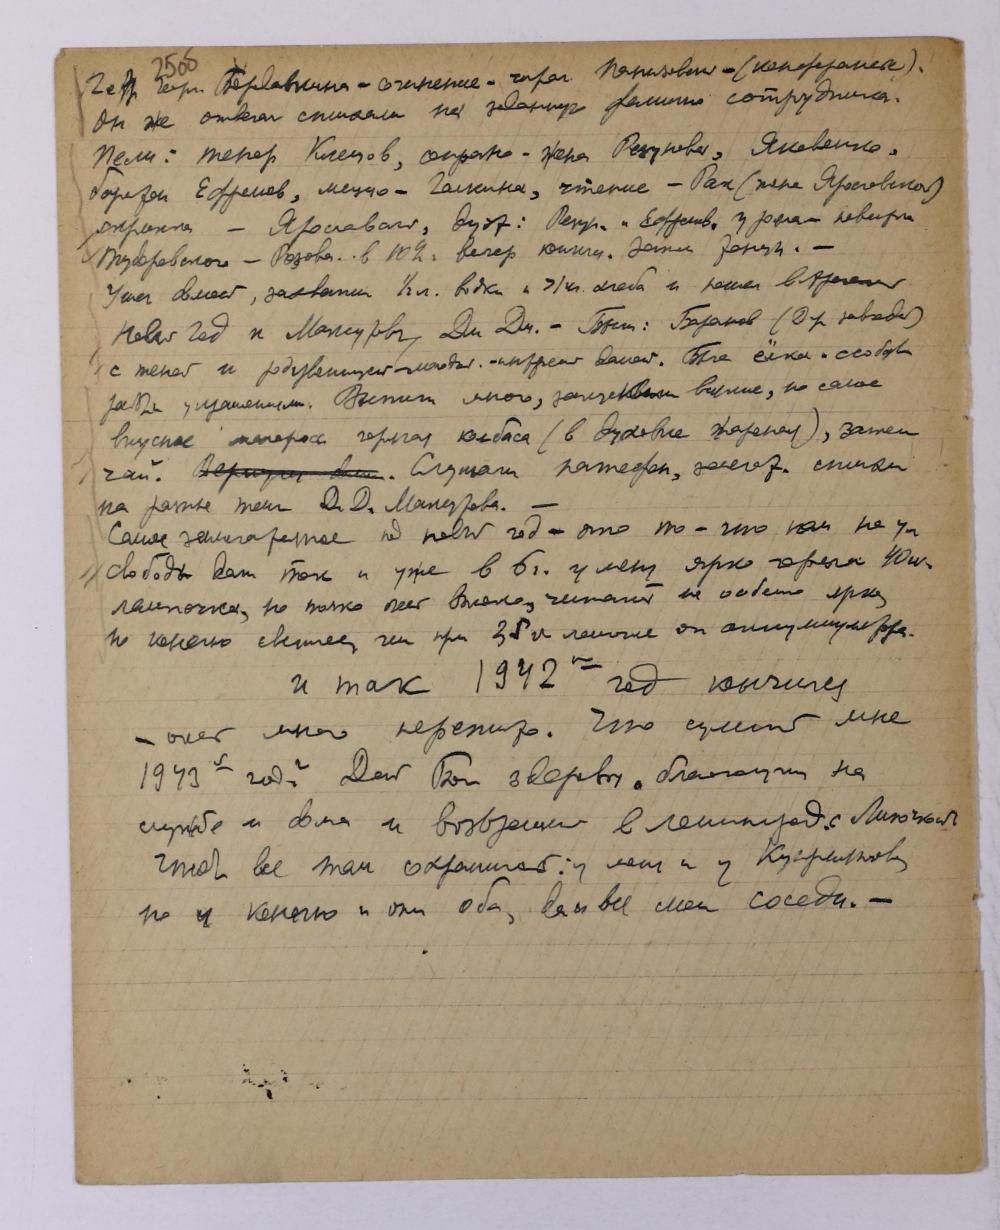 2506
Державина - сочинение - читал (конферансье).
Он же отвечал стихами на заданную фамилию сотрудника.
Пели: тенор Клецов, сопрано - жена Резунова, Яковенко,
баритон Ефремов, меццо - Галкина, чтение - Рах (жена Ярославского)
скрипка - Ярославский, дуэт: Резун. и Ефрем. у рояля
- Розова. в 10 ч. вечер кончил. затем танцы. -
Ушел домой, захватил ½ л. водки и хлеба и пошел встречать
Новый Год к Мансурову Дм. Дм. - Были: Баранов (Дир. завода)
с женой и Была ёлка с особ
украшениями. Выпили много, закусывали вкусно, но самое
вкусное горячая колбаса (в духовке жареная), затем
чай. Слушали патефон, стихи
на разные темы Д. Д. Мансурова. -
Самое замечательное под новый год - это то - что нам на ул
Свободы дали ток и уже в 6 ч. у меня ярко горела 40 w.
лампочка, но только очень читать не особенно ярко,
но конечно светлее, чем при 35 w лампочке от аккумулятора.
и так 1942й год кончился
- очень много пережито. Что сулит мне
1943й год? Дай Бог здоровья, благополучия на
службе и дома и возвращения в Ленинград с Лилочкой
Чтоб все там сохранилось: у меня и у
но и конечно и они оба, да и все мои соседи. -